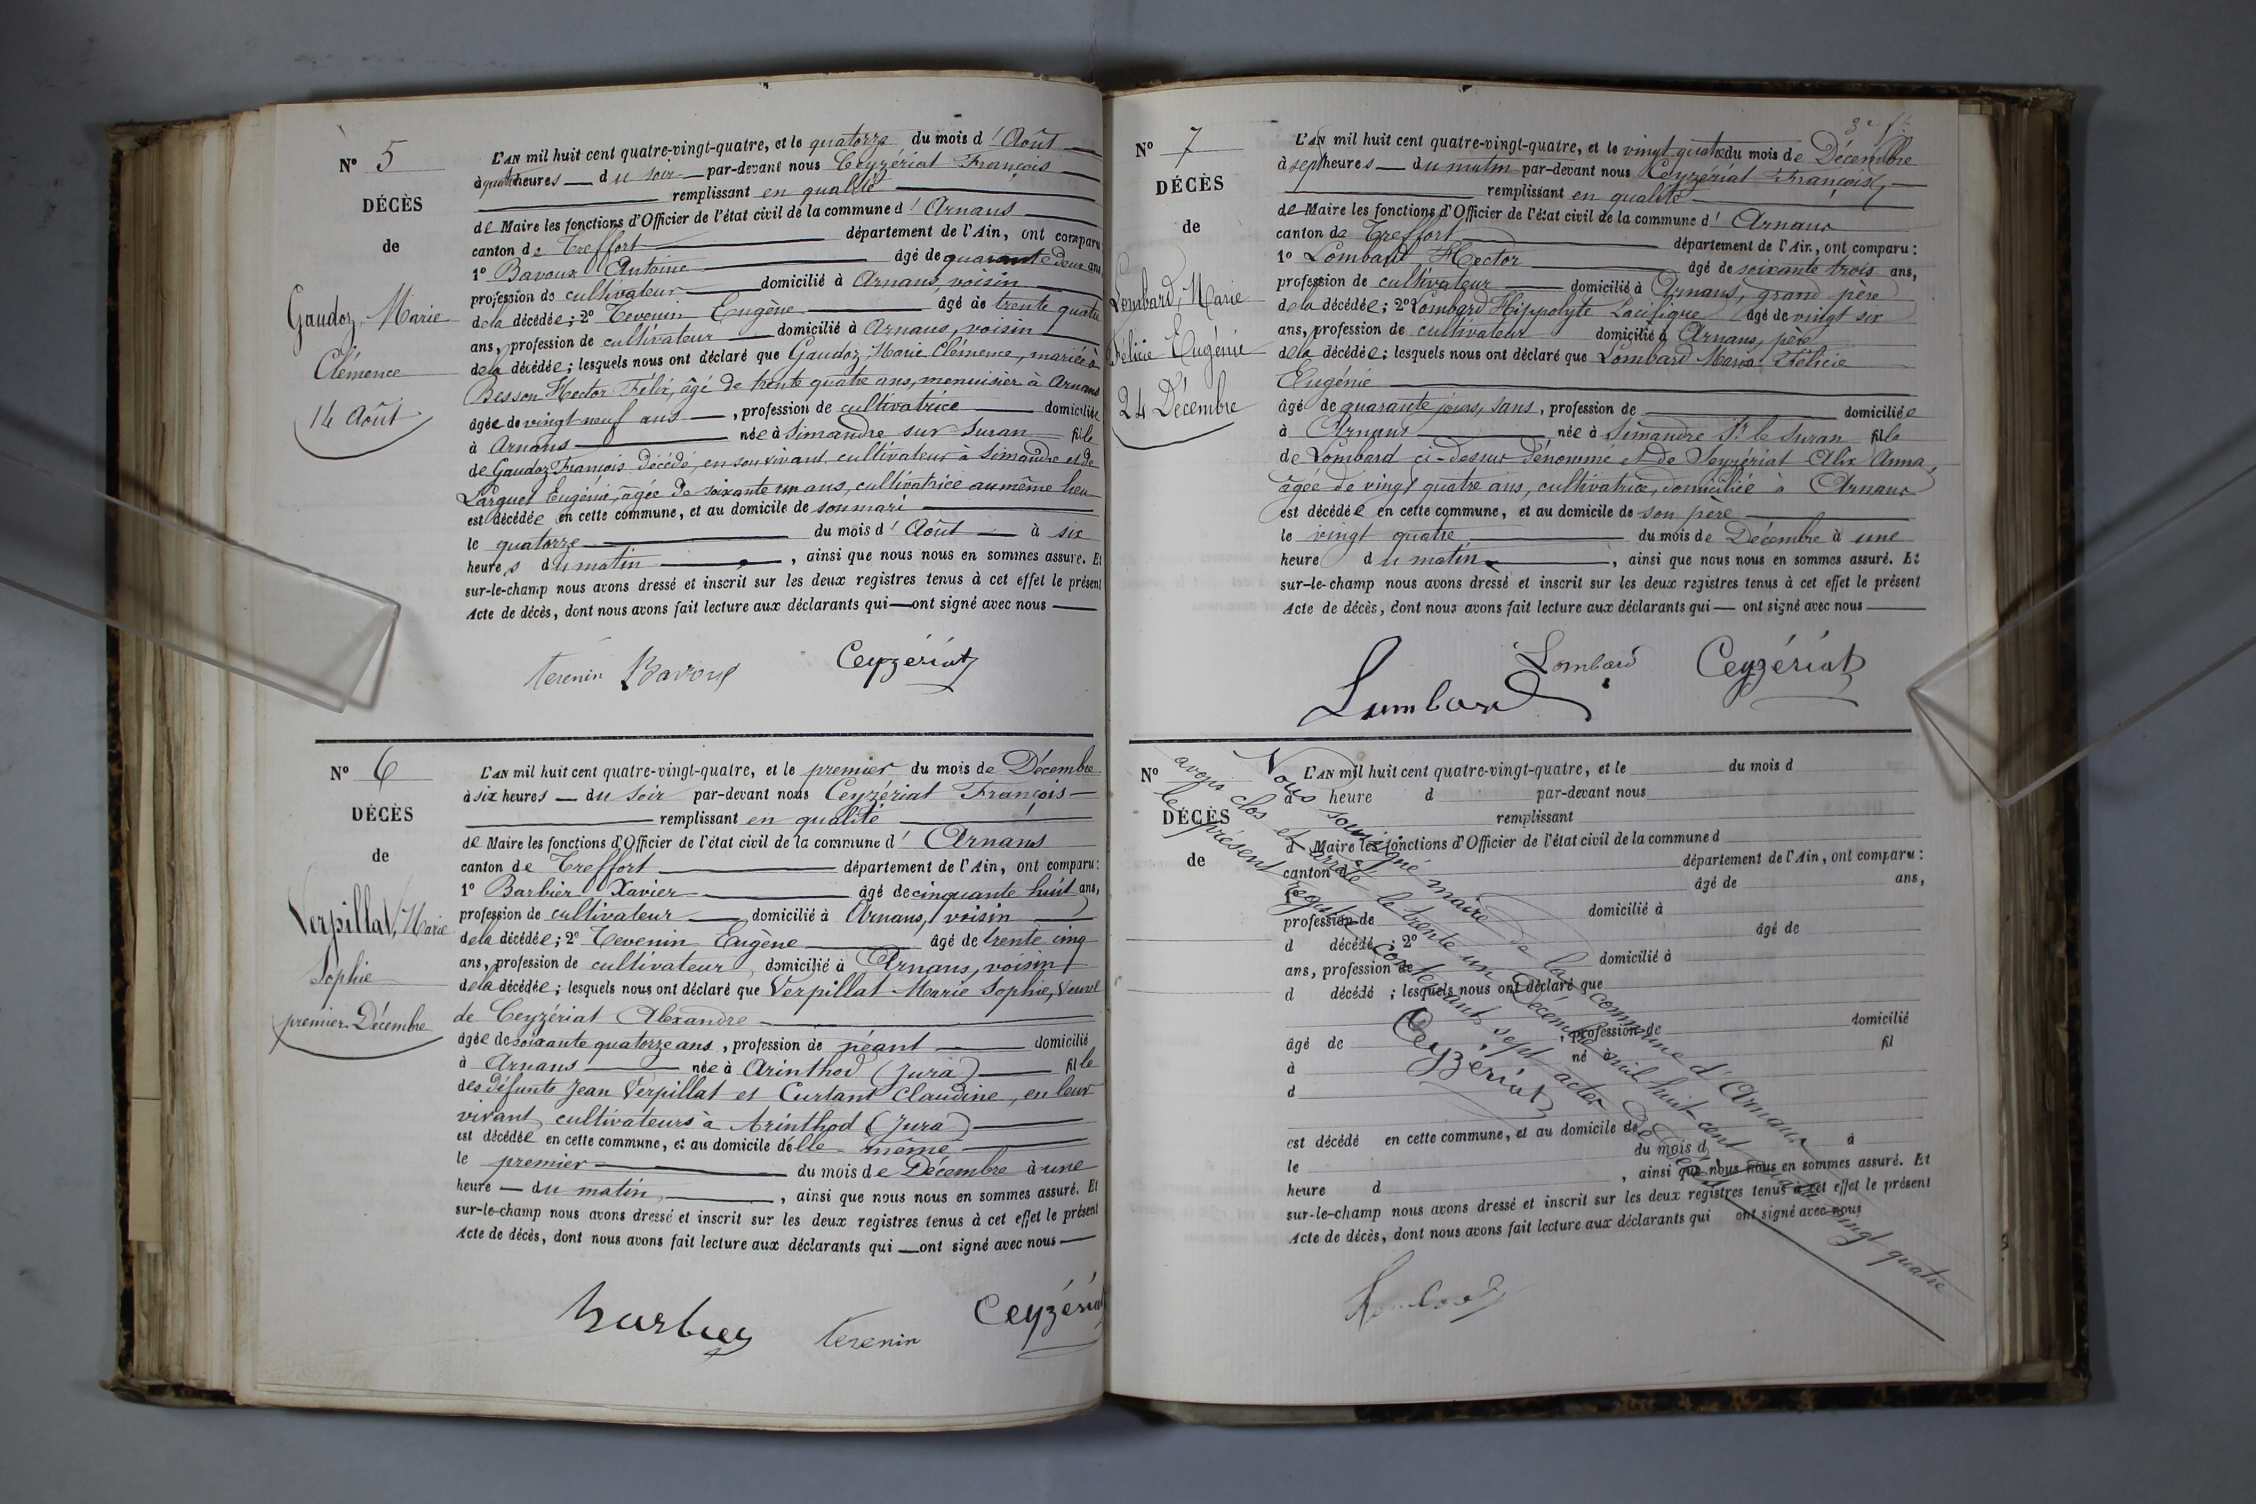 N° 5
DÉCÈS
de
Gaudoz, Marie
Clémence
14 Août
L'AN mil huit cent quatre-vingt-quatre, et le quatorze du mois d' Août
à quatre heures du soir par-devant nous Ceyzériat François
remplissant en qualité
de Maire les fonctions d'Officier de l'état civil de la commune d' Arnans
canton de Treffort département de l'Ain, ont comparu
1° Bavoux Antoine âgé de quarante deux ans
profession de cultivateur domicilié à Arnans, voisin
de la décédée; 2° Tevenin Eugène âgé de trente quatre
ans, profession de cultivateur domicilié à Arnans, voisin
de la décédée; lesquels nous ont déclaré que Gaudoz, Marie Clémence, mariée à
Besson Hector Félix, âgé de trente quatre ans, menuisier à Arnans
âgée de vingt neuf ans, profession de cultivatrice domiciliée
à Arnans née à Simandre sur Suran fille
de Gaudoz François décédé, en son vivant cultivateur à Simandre et de
Eugénie, âgée de soixante un ans, cultivatrice au même lieu
est décédée en cette commune, et au domicile de son mari
le quatorze du mois d' Août à six
heures du matin, ainsi que nous nous en sommes assuré. Et
sur-le-champ nous avons dressé et inscrit sur les deux registres tenus à cet effet le présent
Acte de décès, dont nous avons fait lecture aux déclarants qui ont signé avec nous
Tevenin Bavoux Ceyzériat
N° 6
DÉCÈS
de
Verpillat, Marie
Sophie
premier Décembre
L'AN mil huit cent quatre-vingt-quatre, et le premier du mois de Décembre
à six heures du soir par-devant nous Ceyzériat François
remplissant en qualité
de Maire les fonctions d'Officier de l'état civil de la commune d' Arnans
canton de Treffort département de l'Ain, ont comparu:
1° Barbier Xavier âgé de cinquante huit ans,
profession de cultivateur domicilié à Arnans, voisin
de la décédée; 2° Tevenin Eugène âgé de trente cinq
ans, profession de cultivateur, domicilié à Arnans, voisin
de la décédée; lesquels nous ont déclaré que Verpillat Marie Sophie, veuve
de Ceyzériat Alexandre
âgée de soixante quatorze ans, profession de néant domicilié
à Arnans née à Arinthod (Jura) fille
des défunts Jean Verpillat et Curtant Claudine, en leur
vivant cultivateurs à Arinthod (Jura)
est décédée en cette commune, et au domicile d'elle même
le premier du mois de Décembre à une
heure du matin, ainsi que nous nous en sommes assuré. Et
sur-le-champ nous avons dressé et inscrit sur les deux registres tenus à cet effet le présent
Acte de décès, dont nous avons fait lecture aux déclarants qui ont signé avec nous
Barbier Tevenin Ceyzériat
N° 7
DÉCÈS
de
Lombard, Marie
Félicie Eugénie
24 Décembre
L'AN mil huit cent quatre-vingt-quatre, et le vingt quatre du mois de Décembre
à sept heures du matin par-devant nous Ceyzériat François,
remplissant en qualité
de Maire les fonctions d'Officier de l'état civil de la commune d' Arnans
canton de Treffort département de l'Ain, ont comparu:
1° Lombard Hector âgé de soixante trois ans,
profession de cultivateur domicilié à Arnans, grand père
de la décédée; 2° Lombard Hippolyte Pacifique âgé de vingt six
ans, profession de cultivateur domicilié à Arnans, père
de la décédée; lesquels nous ont déclaré que Lombard Marie Félicie
Eugénie
âgé de quarante jours, sans, profession de domiciliée
à Arnans née à Simandre le Suran fille
de Lombard ci-dessus dénommé et de Seyzériat Alix Anna,
âgée de vingt quatre ans, cultivatrice, domiciliée à Arnans
est décédée en cette commune, et au domicile de son père
le vingt quatre du mois de Décembre à une
heure du matin, ainsi que nous nous en sommes assuré. Et
sur-le-champ nous avons dressé et inscrit sur les deux registres tenus à cet effet le présent
Acte de décès, dont nous avons fait lecture aux déclarants qui ont signé avec nous
Lombard Lombard Ceyzériat
N°
DÉCÈS
de
L'AN mil huit cent quatre-vingt-quatre, et le du mois d
à heure d par-devant nous
remplissant
d Maire les fonctions d'Officier de l'état civil de la commune d
canton d département de l'Ain, ont comparu:
1° âgé de ans,
profession de domicilié à
d décédé; 2° âgé de
ans, profession de domicilié à
d décédé; lesquels nous ont déclaré que
âgé de, profession de domicilié
à né à fil
d
est décédé en cette commune, et au domicile de
le du mois d à
heure d, ainsi que nous nous en sommes assuré. Et
sur-le-champ nous avons dressé et inscrit sur les deux registres tenus à cet effet le présent
Acte de décès, dont nous avons fait lecture aux déclarants qui ont signé avec nous
Nous soussigné maire de la commune d'Arnans
avons clos et arrêté le trente un Décembre mil huit cent quatre vingt quatre
le présent registre contenant sept actes de décès
Ceyzériat